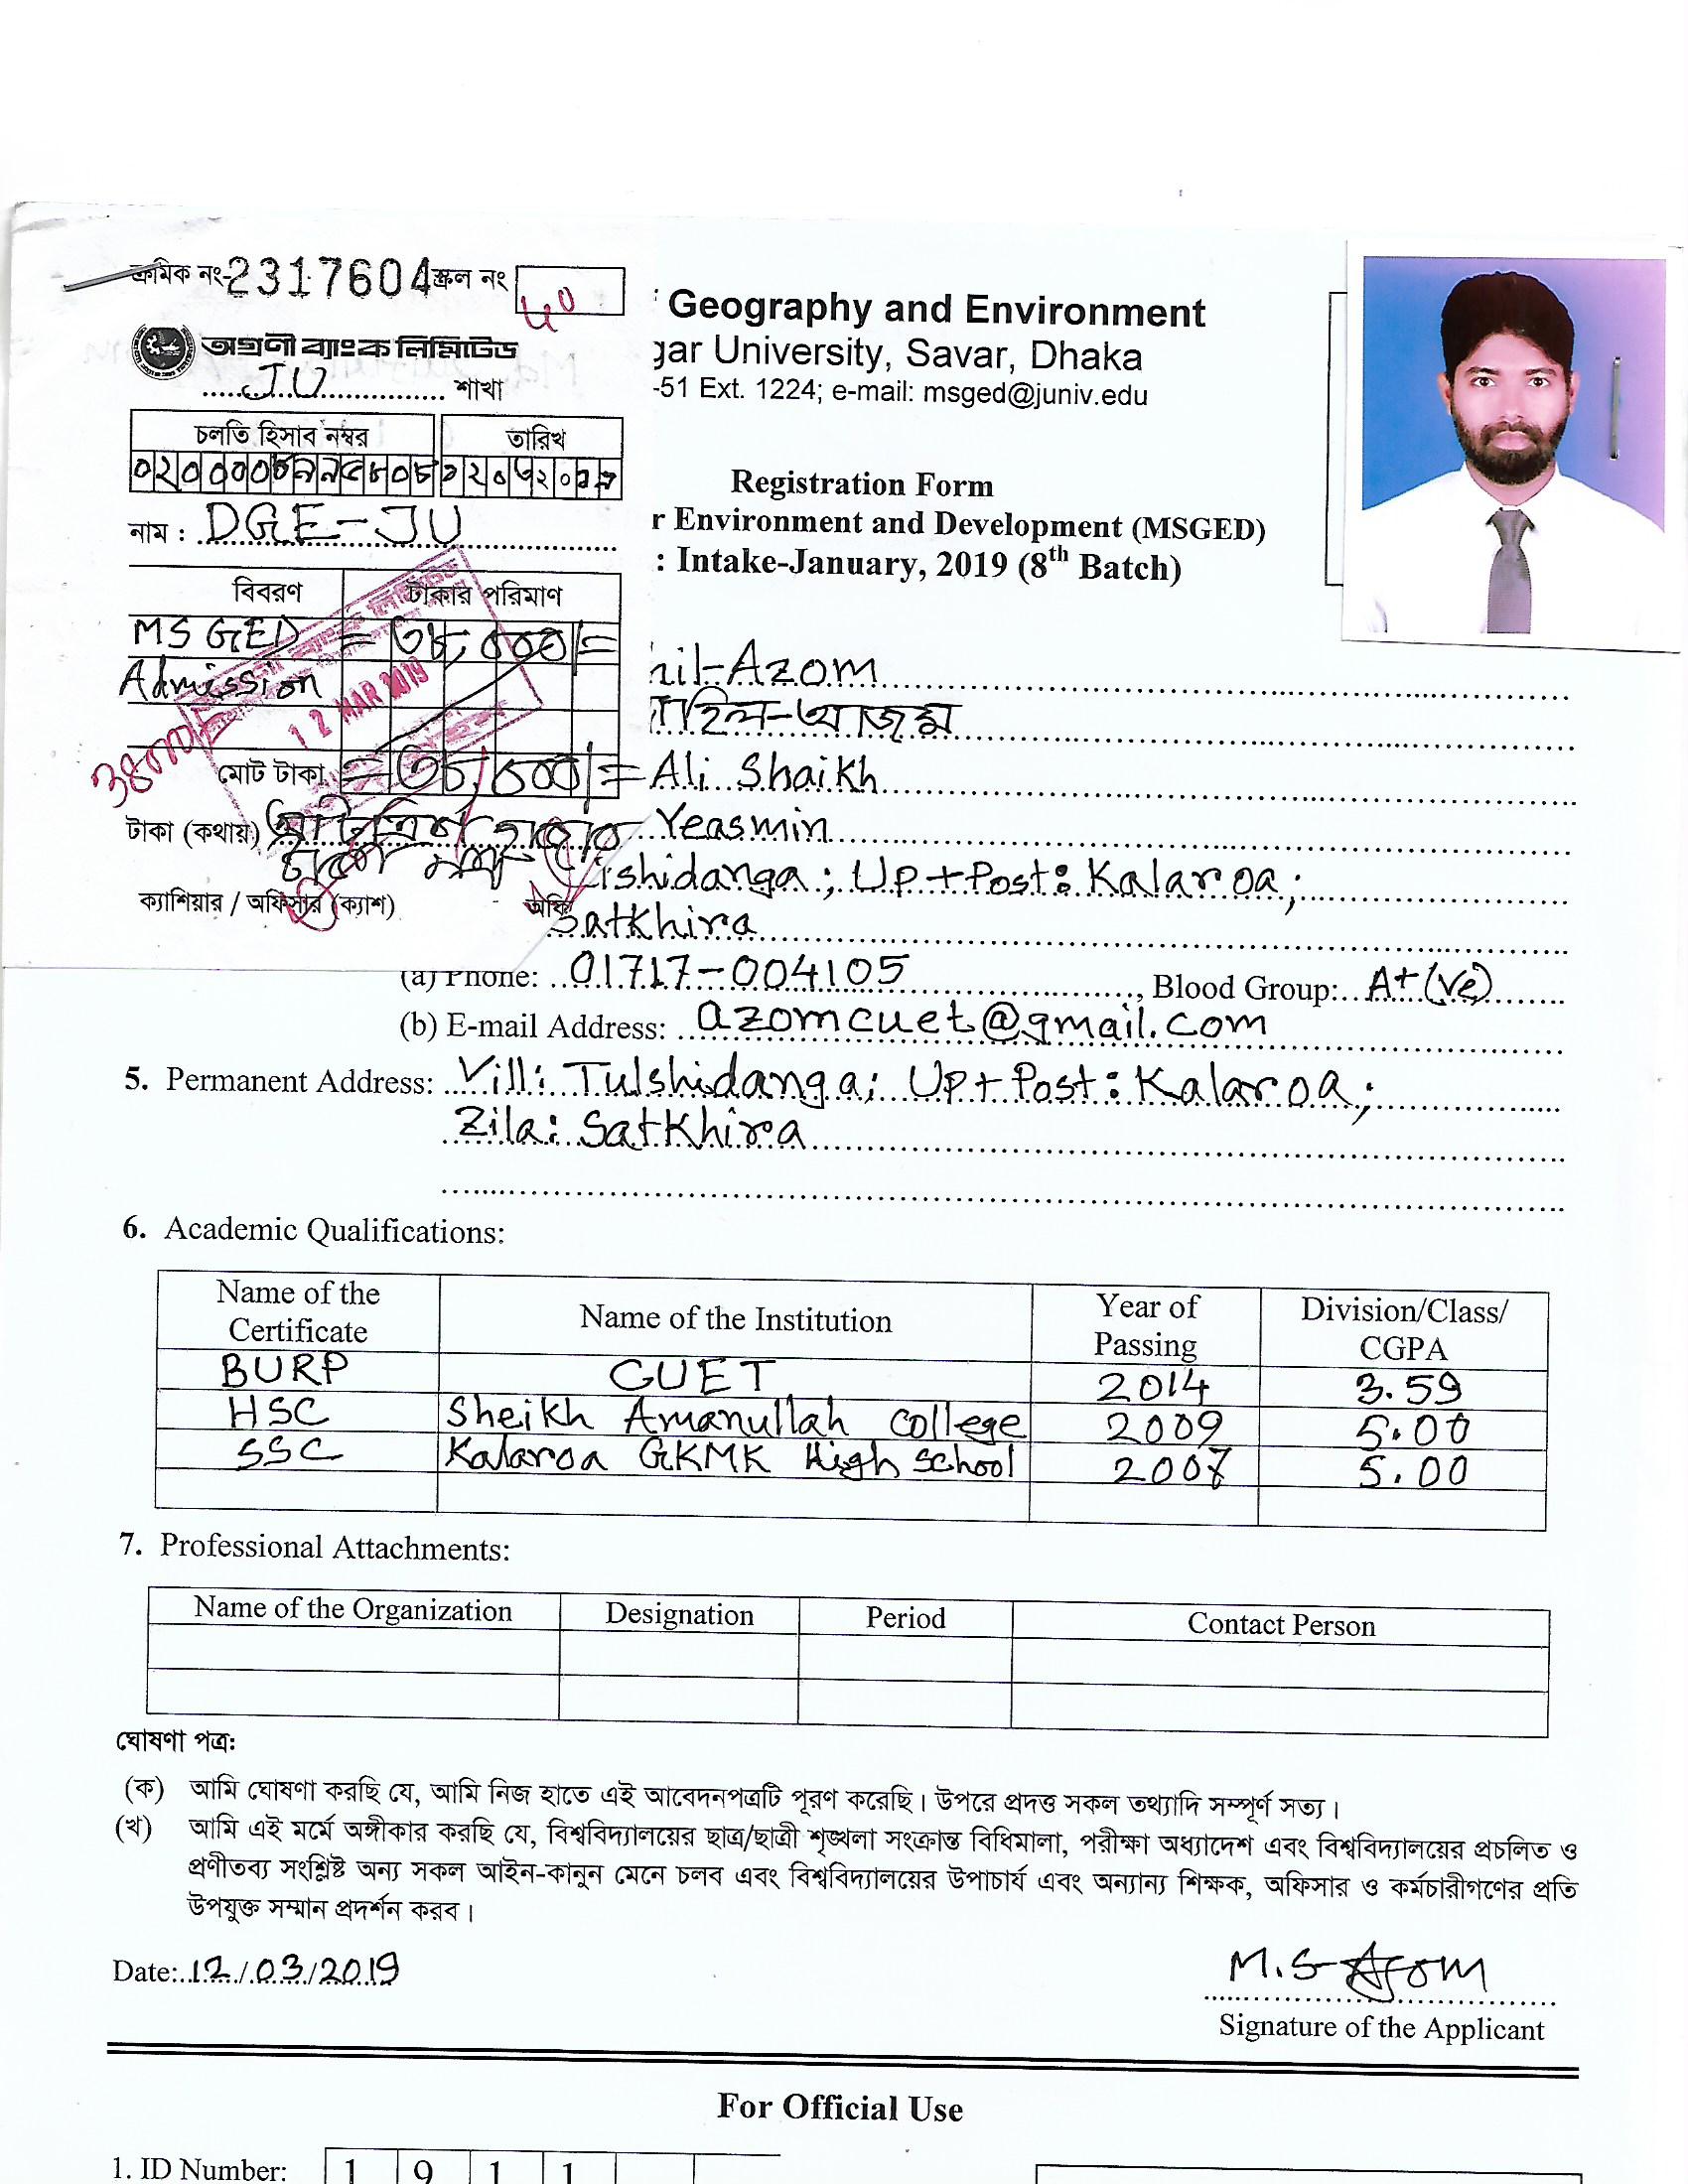 ক্রমিক নং- 2317604 স্ক্রল নং ৫০
অগ্রণী ব্যাংক লিমিটেড
JU শাখা
চলতি হিসাব নম্বর তারিখ
নাম : DGE-JU
বিবরণ টাকার পরিমাণ
MS GED = ৩৮,০০০/=
Admission
12 MAR 2019
38000/=
মোট টাকা = ৩৮,০০০/=
টাকা (কথায়) আটত্রিশ হাজার
টাকা মাত্র
ক্যাশিয়ার / অফিসার (ক্যাশ)
Geography and Environment
gar University, Savar, Dhaka
-51 Ext. 1224; e-mail: msged@juniv.edu
Registration Form
r Environment and Development (MSGED)
: Intake-January, 2019 (8th Batch)
hil-Azom
হিল-আজম
Ali Shaikh
Yeasmin
lshidanga; Up+Post: Kalaroa;
Satkhira
(a) Phone: 01717-004105, Blood Group: A+(Ve)
(b) E-mail Address: azomcuet@gmail.com
5. Permanent Address: Vill: Tulshidanga; Up+Post: Kalaroa;
Zila: Satkhira
6. Academic Qualifications:
Name of the Certificate Name of the Institution Year of Passing Division/Class/ CGPA
BURP CUET 2014 3.59
HSC Sheikh Amanullah College 2009 5.00
SSC Kalaroa GKMK High School 2007 5.00
7. Professional Attachments:
Name of the Organization Designation Period Contact Person
ঘোষণা পত্র:
(ক) আমি ঘোষণা করছি যে, আমি নিজ হাতে এই আবেদনপত্রটি পূরণ করেছি। উপরে প্রদত্ত সকল তথ্যাদি সম্পূর্ণ সত্য।
(খ) আমি এই মর্মে অঙ্গীকার করছি যে, বিশ্ববিদ্যালয়ের ছাত্র/ছাত্রী শৃঙ্খলা সংক্রান্ত বিধিমালা, পরীক্ষা অধ্যাদেশ এবং বিশ্ববিদ্যালয়ের প্রচলিত ও
প্রণীতব্য সংশ্লিষ্ট অন্য সকল আইন-কানুন মেনে চলব এবং বিশ্ববিদ্যালয়ের উপাচার্য এবং অন্যান্য শিক্ষক, অফিসার ও কর্মচারীগণের প্রতি
উপযুক্ত সম্মান প্রদর্শন করব।
Date: 12/03/2019 M.S Azom
Signature of the Applicant
For Official Use
1. ID Number: 1 9 1 1